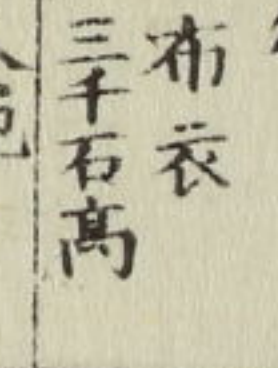 布衣
三千石高